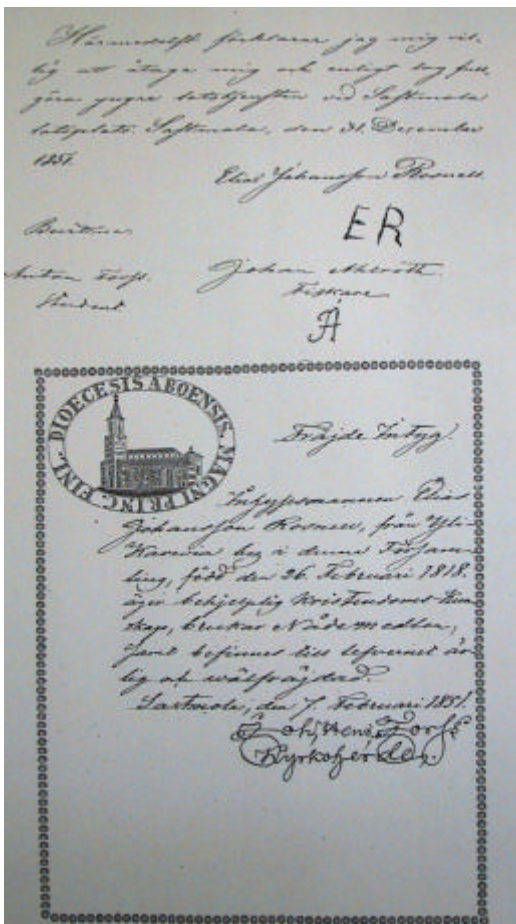 Härmedelst förklarar jag mig vil-
lig att åtage mig och enligt lag full-
göra yngre lotstjensten vid Saftmola
lotsplats. Saftmola, den 31. December
1851.
Elias Johansson Rosnell
ER
Johan
fiskare
Anton Forss.
Student
DIOECESIS ABOENSIS. MAGNI PRINC. FINL.
Fräjde Intyg.
Inhysesmannen Elias
Johansson Rosnell, från Yli-
by i denna Försam-
ling, född den 26. Februari 1818.
äger behjelplig Kristendoms kun-
skap, brukar Nådemedlen,
samt befinnes till lefvernet är-
lig och wälfräjdad.
Sastmola, den 7. Februari 1851.
Joh. Henr. Forss
Kyrkoherde.